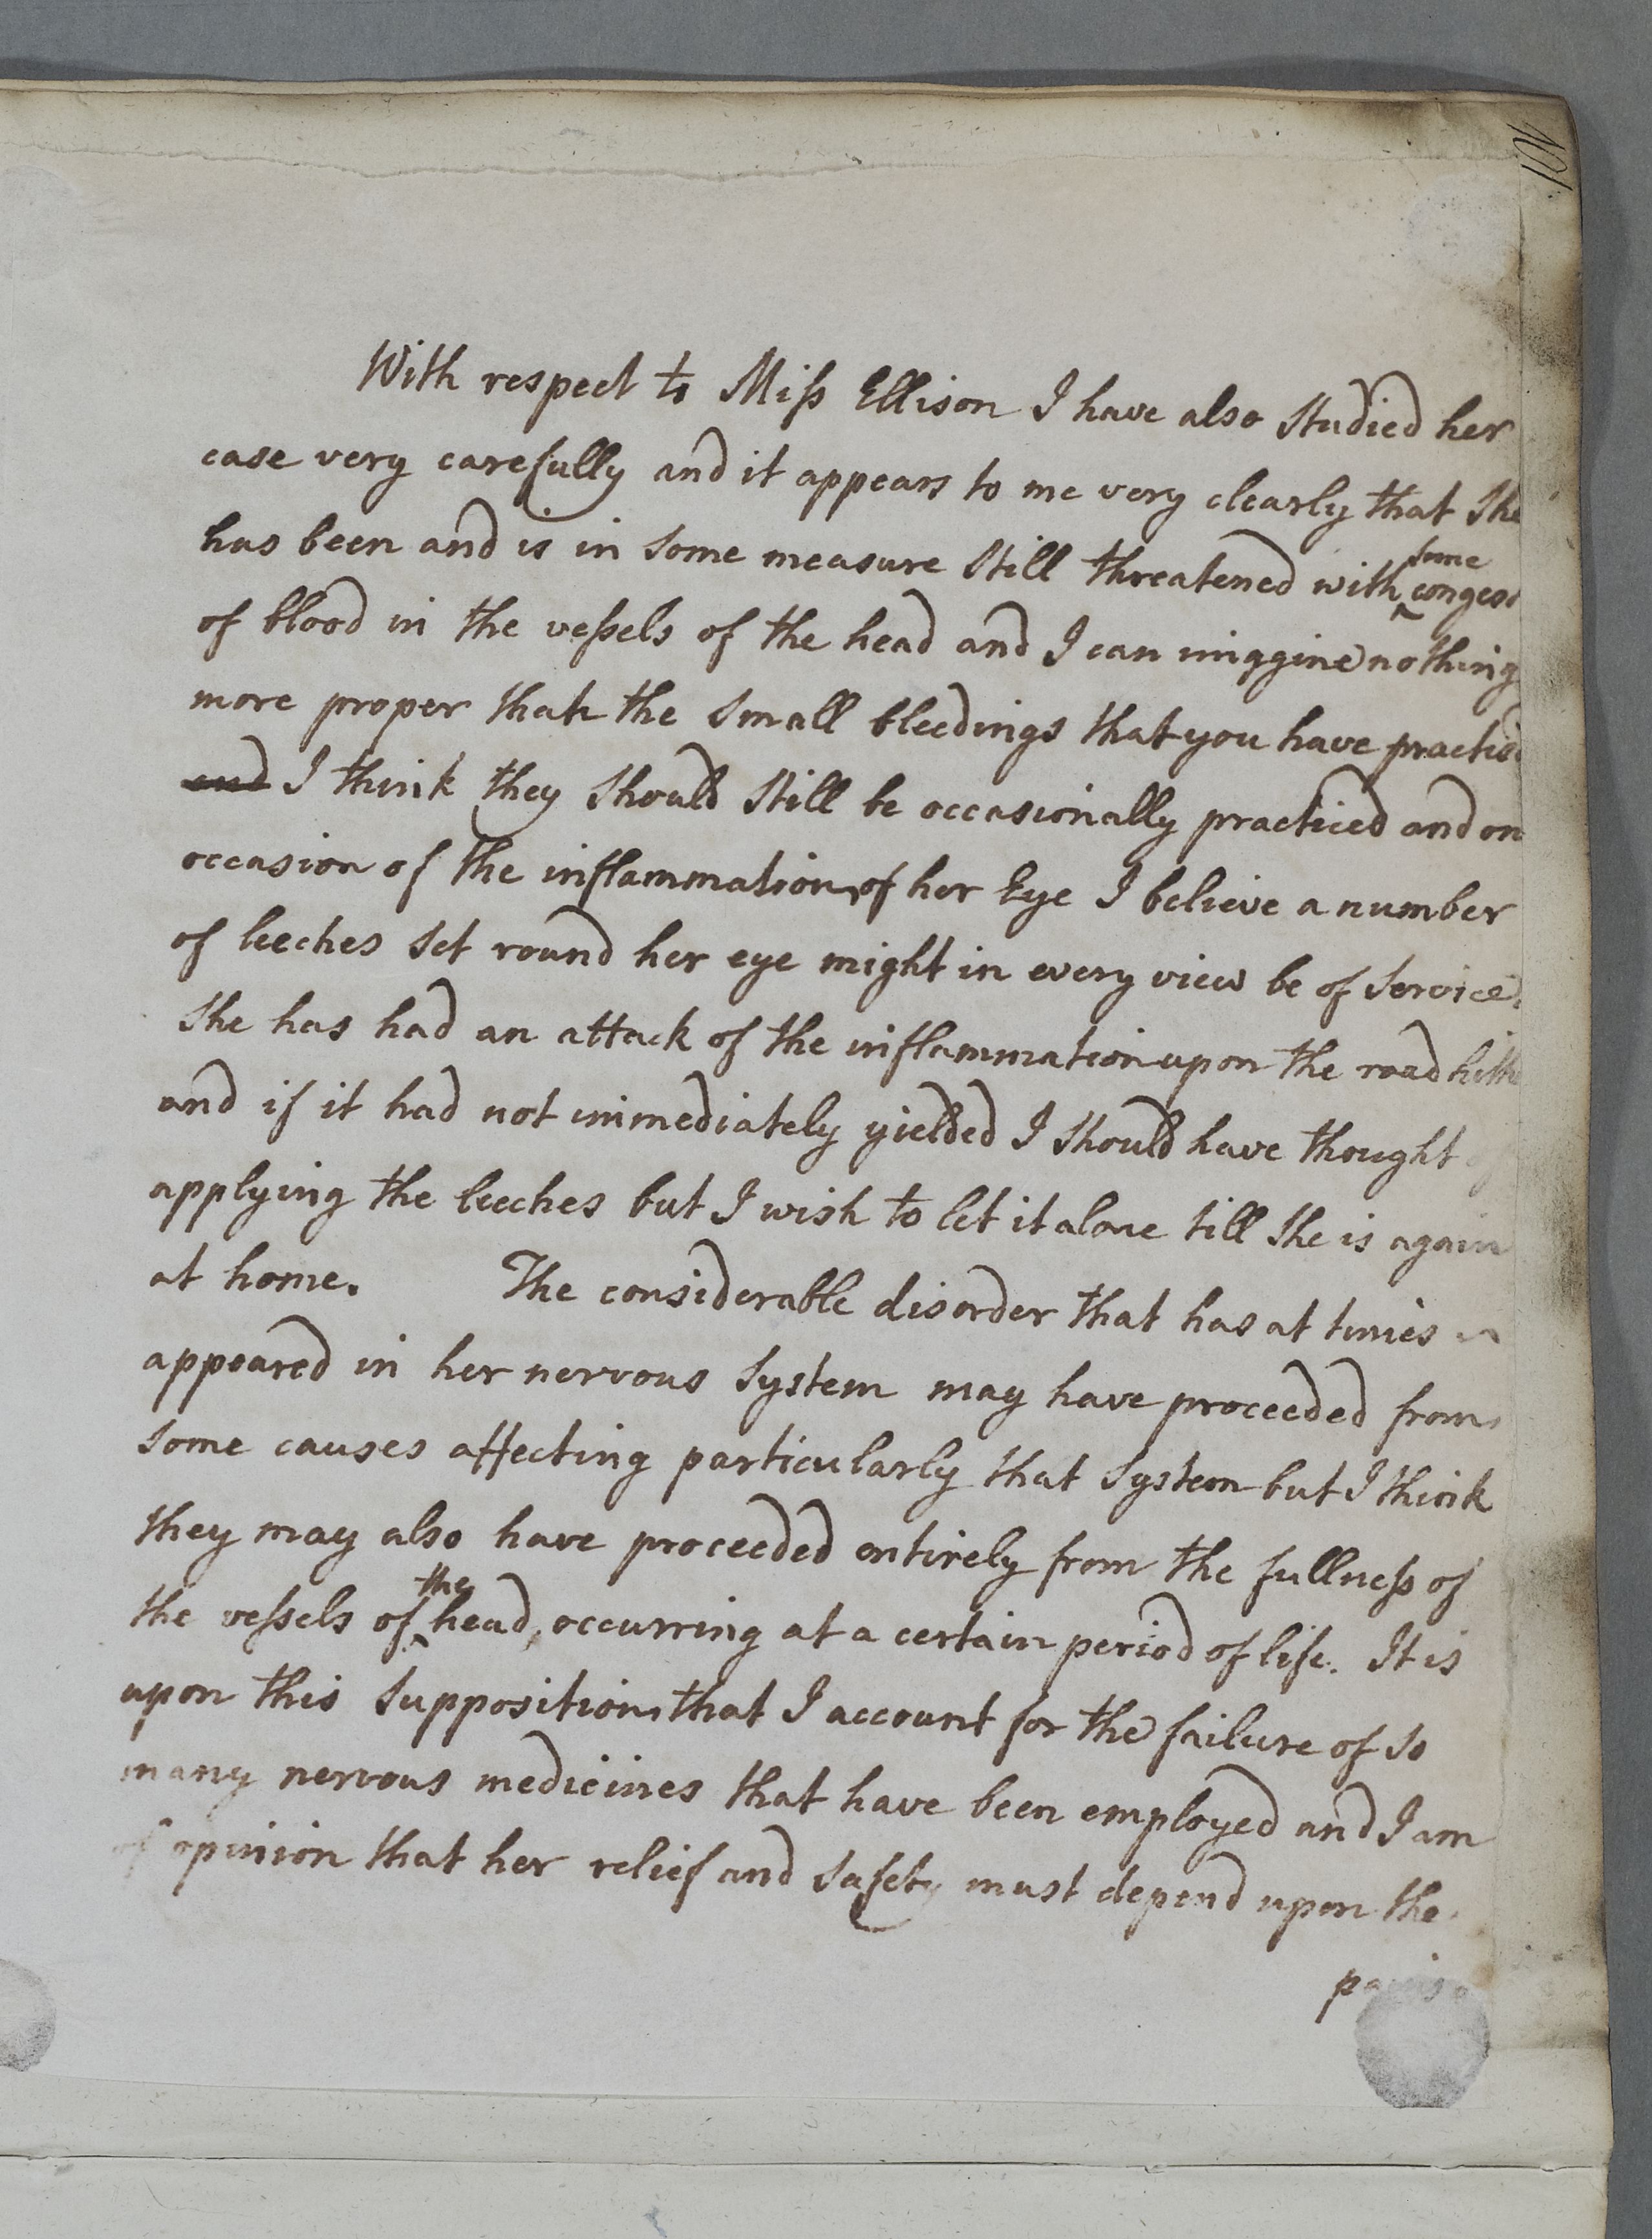 101
With respect to Miſs Ellison I have also studied her
case very carefully and it appears to me very clearly that she
has been and is in some measure still threatened with some conges
of blood in the veſsels of the head and I can imggine nothing
more proper than the small bleedings that you have practis
and I think they should still be occasionally practiced and on
occasion of the inflammation of her Eye I believe a number
of leeches set round her eye might in every view be of service
She has had an attack of the inflammation upon the road hith
and if it had not immediately yielded I should have thought of
applying the leeches but I wish to let it alone till she is again
at home. The considerable disorder that has at times
appeared in her nervous system may have proceeded from
some causes affecting particularly that system but I think
they may also have proceeded entirely from the fullneſs of
the veſsels of the head, occurring at a certain period of life. It is
upon this supposition that I account for the failure of so
many nervous medicines that have been employed and I am
of opinion that her relief and safety must depend upon the